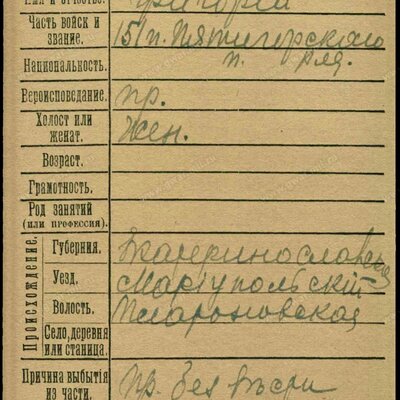 Имя и отчество. Григорій
Часть войск и звание. 151 п. Пятигорского
п. ряд.
Національность.
Вероисповедание. пр.
Холост или женат. жен.
Возраст.
Грамотность.
Род занятий (или профессия).
Происхождение.
Губерния. Екатеринославская
Уезд. Маріупольскій
Волость.
Село, деревня или станица.
Причина выбытія из части. пр. без вѣсти